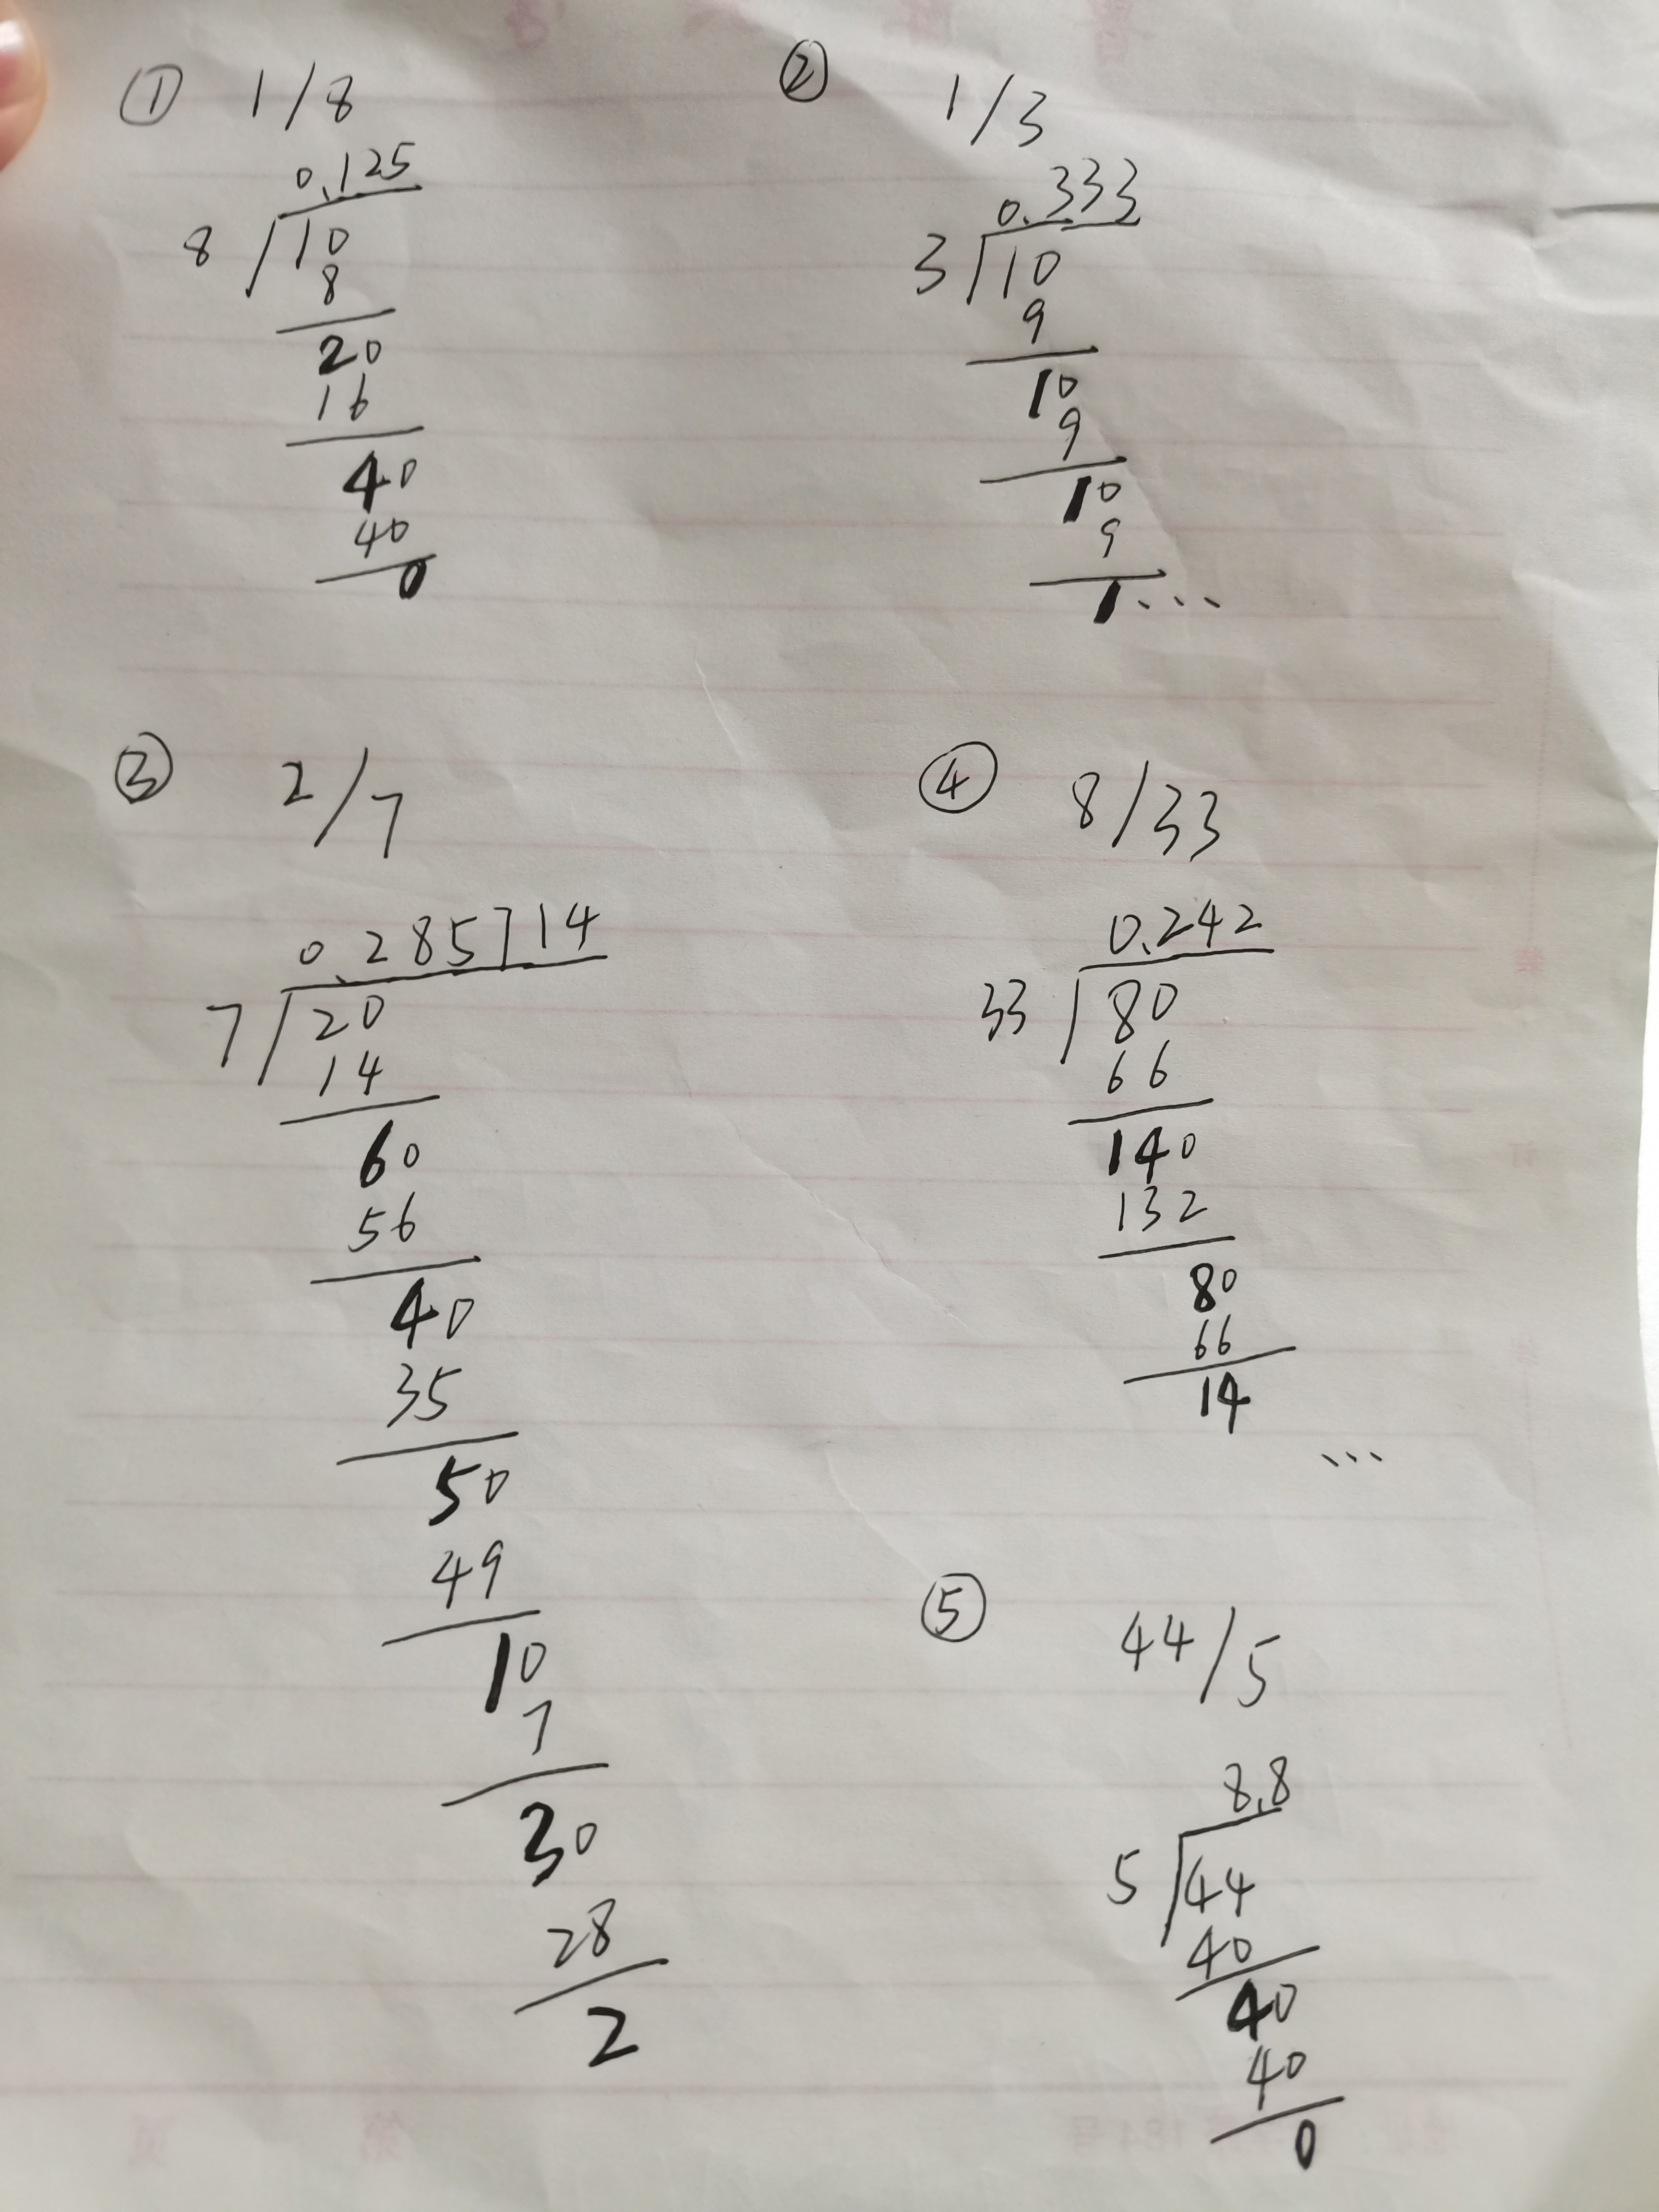 ① 1/8
0.125
8 10
8
20
16
40
40
0
② 1/3
0.333
3 10
9
10
9
10
9
1...
③ 2/7
0.285714
7 20
14
60
56
40
35
50
49
10
7
30
28
2
④ 8/33
0.242
33 80
66
140
132
80
66
14
...
⑤ 44/5
8.8
5 44
40
40
40
0